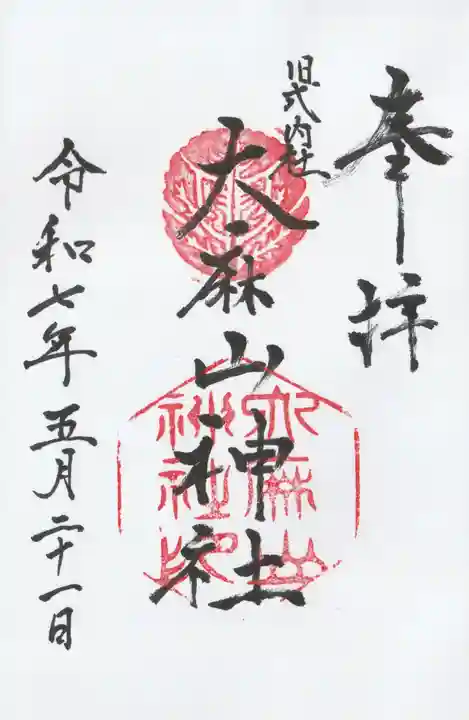 奉拝
旧式内社
大麻山神社
大麻山
神社印
令和七年五月二十一日